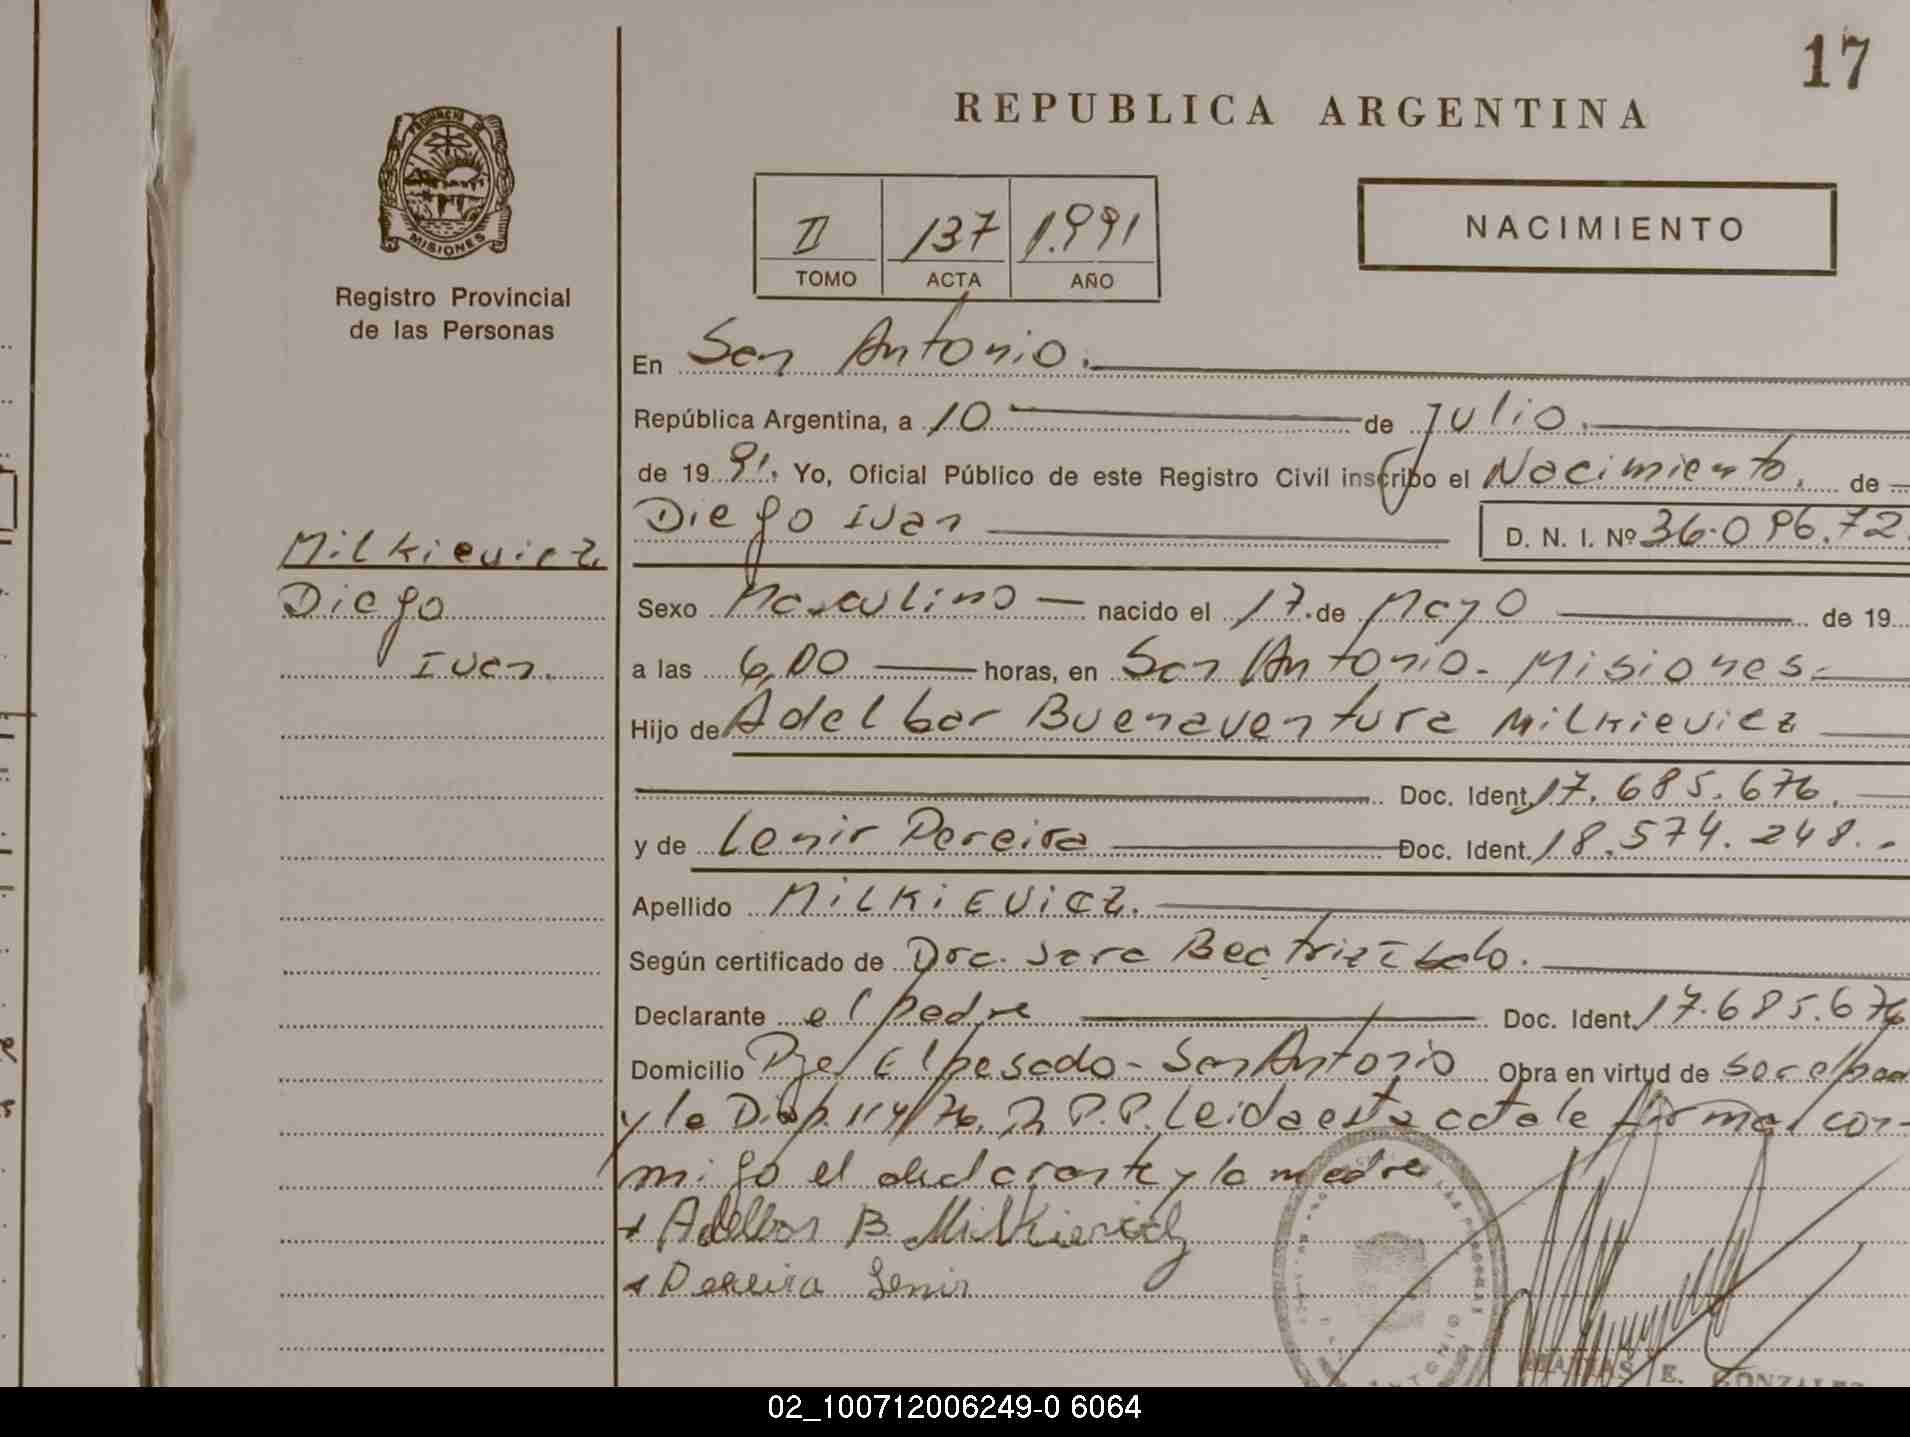 17
REPUBLICA ARGENTINA
PROVINCIA DE
MISIONES
Registro Provincial
de las Personas
II 137 1.991
TOMO ACTA AÑO
NACIMIENTO
En San Antonio.
República Argentina, a 10 de Julio.
de 19 91. Yo, Oficial Público de este Registro Civil inscribo el Nacimiento. de
Diego Ivan D. N. I. Nº 36.096.72
Milkievicz
Diego
Ivan.
Sexo Masculino nacido el 17 de Mayo de 19
a las 6,00 horas, en San Antonio - Misiones.
Hijo de Adelbar Buenaventura Milkievicz
Doc. Ident. 17.685.676.
y de Lenir Pereira Doc. Ident. 18.574.248.-
Apellido MILKIEVICZ.
Según certificado de Dra. Sara Beatriz
Declarante el padre Doc. Ident. 17.685.676
Domicilio Pje El pesado - San Antonio Obra en virtud de ser el pad
y la Disp. 114/76. P.P. Leida esta acta le firma con-
migo el declarante y la madre
+ Adelbar B Milkievicz
+ Pereira Lenir
MATIAS E. GONZALEZ
02_100712006249-0 6064